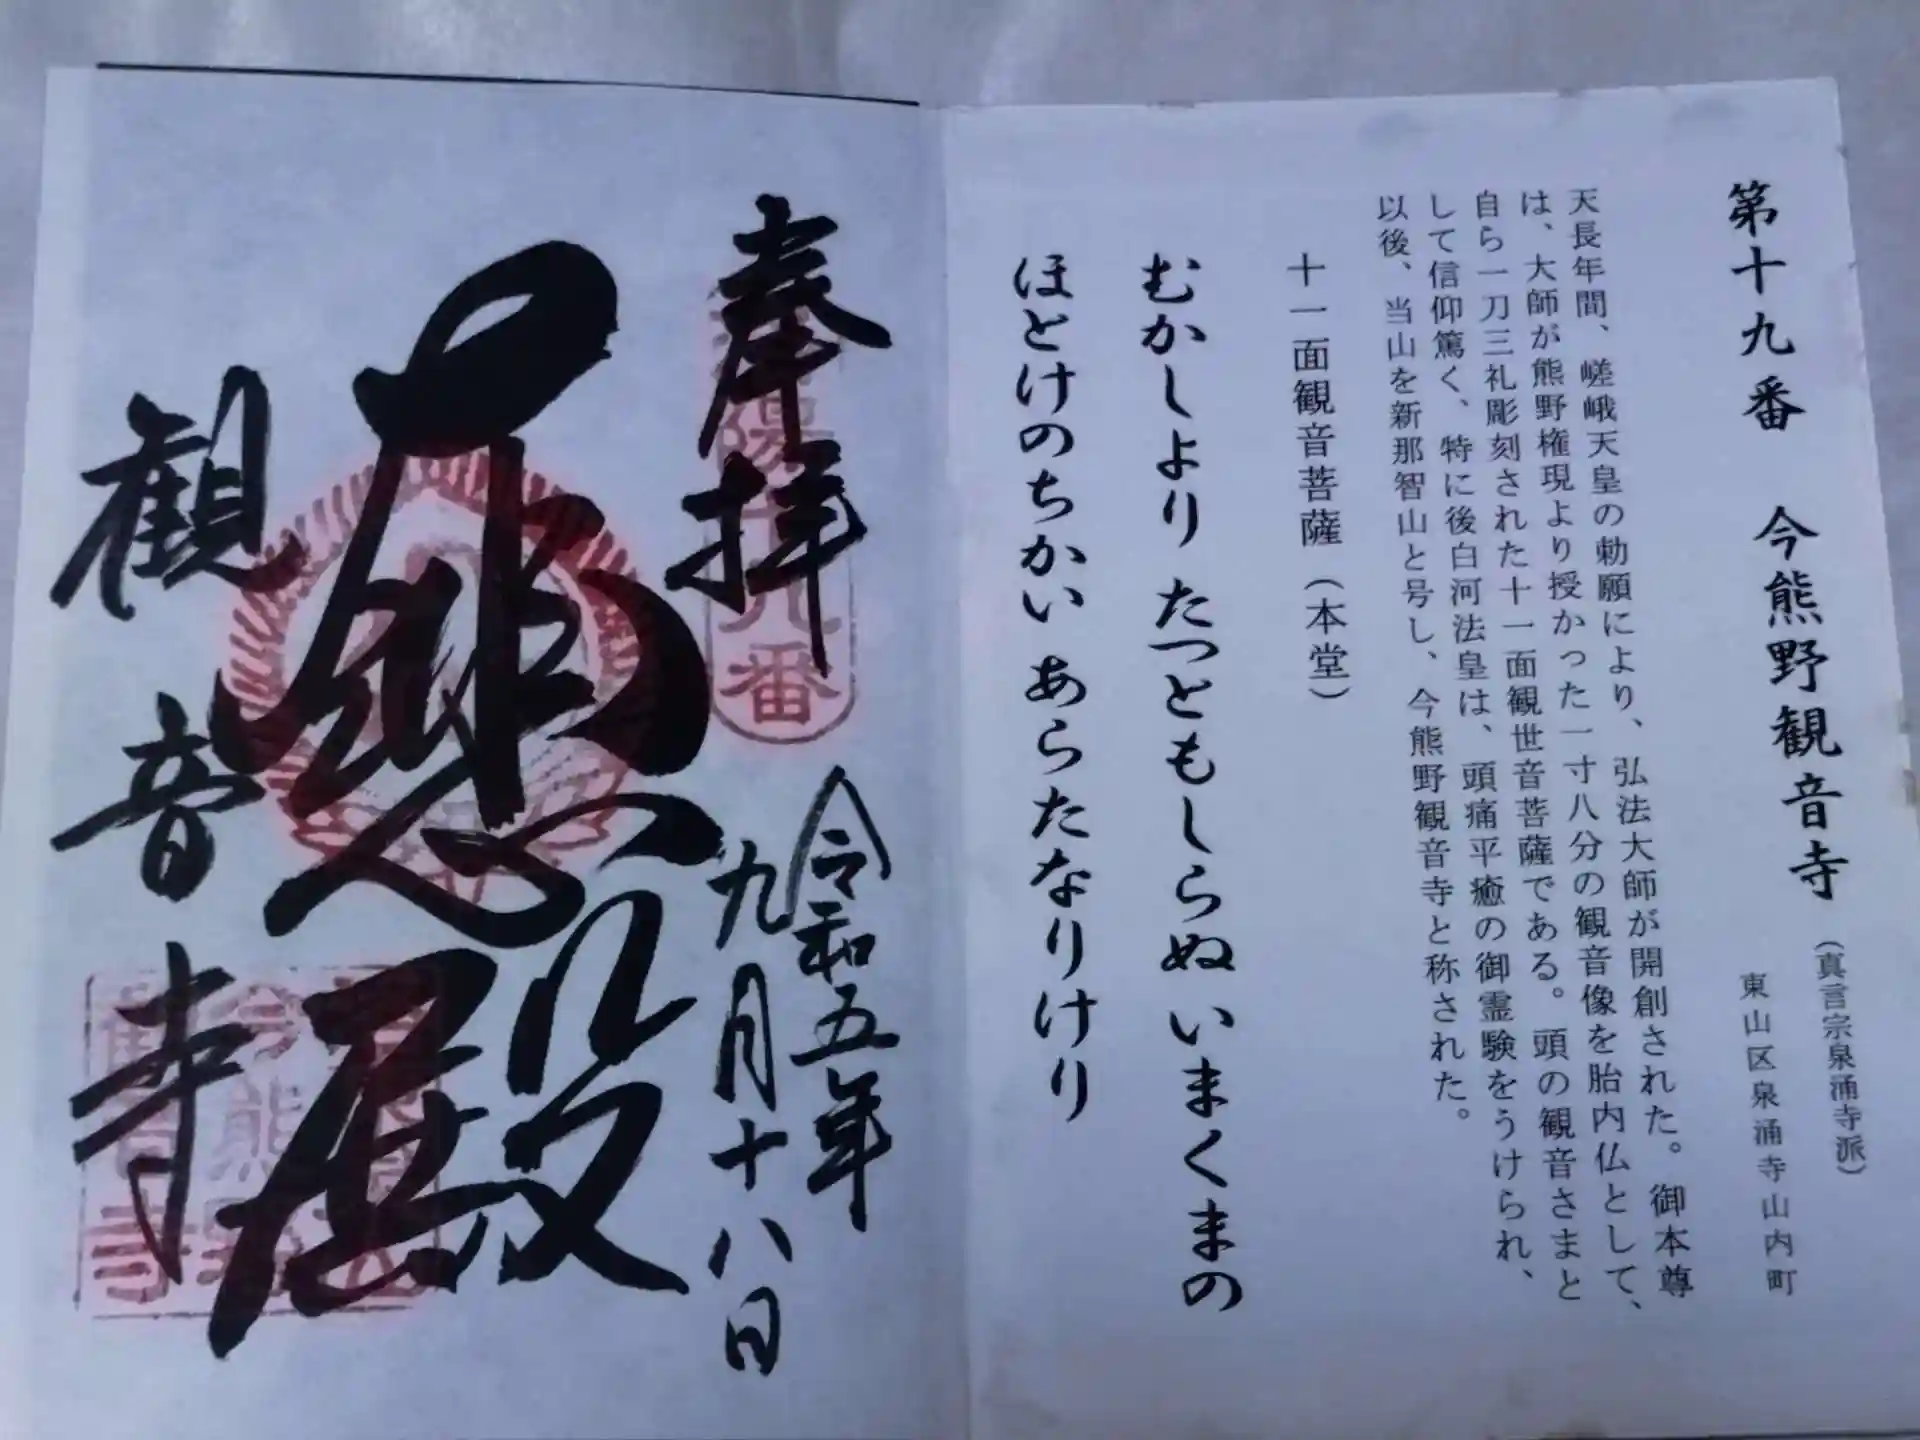 第十九番 今熊野観音寺(真言宗泉涌寺派)
東山区泉涌寺山内町
天長年間、嵯峨天皇の勅願により、弘法大師が開創された。御本尊
は、大師が熊野権現より授かった一寸八分の観音像を胎内仏として、
自ら一刀三礼彫刻された十一面観世音菩薩である。頭の観音さまと
して信仰篤く、特に後白河法皇は、頭痛平癒の御霊験をうけられ、
以後、当山を新那智山と号し、今熊野観音寺と称された。
十一面観音菩薩(本堂)
むかしより たつともしらぬ いまくまの
ほとけのちかい あらたなりけり
奉拝
令和五年
九月十八日
大悲殿
観音寺